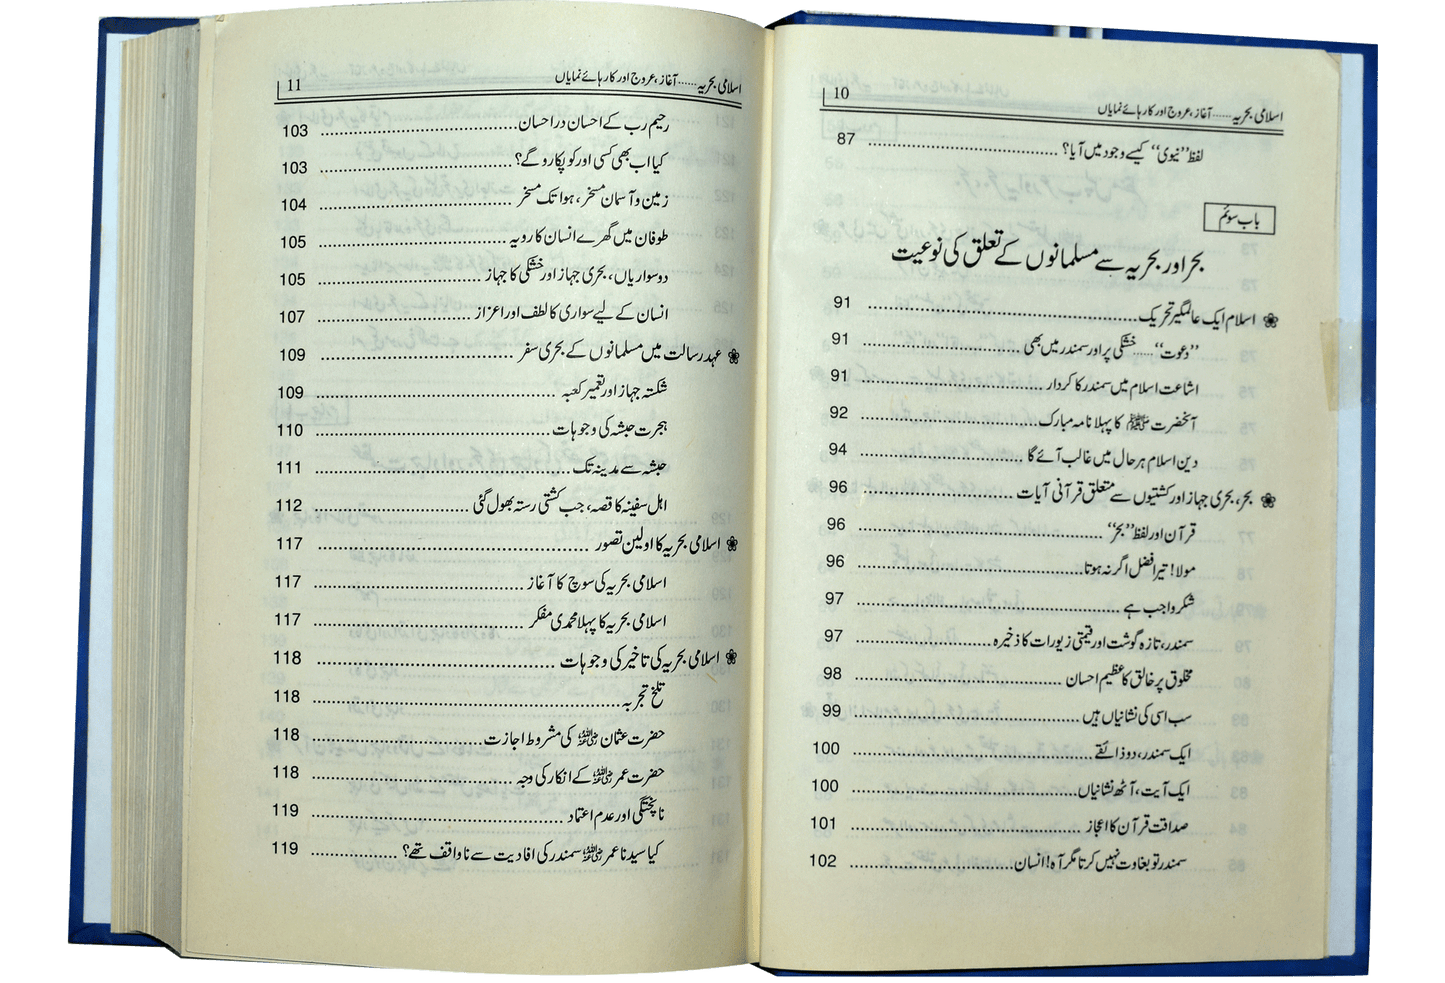 10 اسلامی بحریہ ...... آغاز، عروج اور کارہائے نمایاں
لفظ ’’نیوی‘‘ کیسے وجود میں آیا؟ 87
باب سوئم
بحر اور بحریہ سے مسلمانوں کے تعلق کی نوعیت
اسلام ایک عالمگیر تحریک 91
’’دعوت‘‘ ...... خشکی پر اور سمندر میں بھی 91
اشاعت اسلام میں سمندر کا کردار 91
آنحضرت ﷺ کا پہلا نامہ مبارک 92
دین اسلام ہر حال میں غالب آئے گا 94
بحر، بحری جہاز اور کشتیوں سے متعلق قرآنی آیات 96
قرآن اور لفظ ’’بحر‘‘ 96
مولا! تیرا فضل اگر نہ ہوتا 96
شکر واجب ہے 97
سمندر، تازہ گوشت اور قیمتی زیورات کا ذخیرہ 97
مخلوق پر خالق کا عظیم احسان 98
سب اسی کی نشانیاں ہیں 99
ایک سمندر، دو ذائقے 100
ایک آیت، آٹھ نشانیاں 100
صداقت قرآن کا اعجاز 101
سمندر تو بغاوت نہیں کرتا مگر آہ! انسان 102
11 اسلامی بحریہ ...... آغاز، عروج اور کارہائے نمایاں
رحیم رب کے احسان در احسان 103
کیا اب بھی کسی اور کو پکارو گے؟ 103
زمین و آسمان مسخر، ہوا تک مسخر 104
طوفان میں گھرے انسان کا رویہ 105
دو سواریاں، بحری جہاز اور خشکی کا جہاز 105
انسان کے لیے سواری کا لطف اور اعزاز 107
عہد رسالت میں مسلمانوں کے بحری سفر 109
شکستہ جہاز اور تعمیر کعبہ 109
ہجرت حبشہ کی وجوہات 110
حبشہ سے مدینہ تک 111
اہل سفینہ کا قصہ، جب کشتی رستہ بھول گئی 112
اسلامی بحریہ کا اولین تصور 117
اسلامی بحریہ کی سوچ کا آغاز 117
اسلامی بحریہ کا پہلا محمدی مفکر 117
اسلامی بحریہ کی تاخیر کی وجوہات 118
تلخ تجربہ 118
حضرت عثمان رضی اللہ عنہ کی مشروط اجازت 118
حضرت عمر رضی اللہ عنہ کے انکار کی وجہ 118
ناپختگی اور عدم اعتماد 119
کیا سیدنا عمر رضی اللہ عنہ سمندر کی افادیت سے ناواقف تھے؟ 119